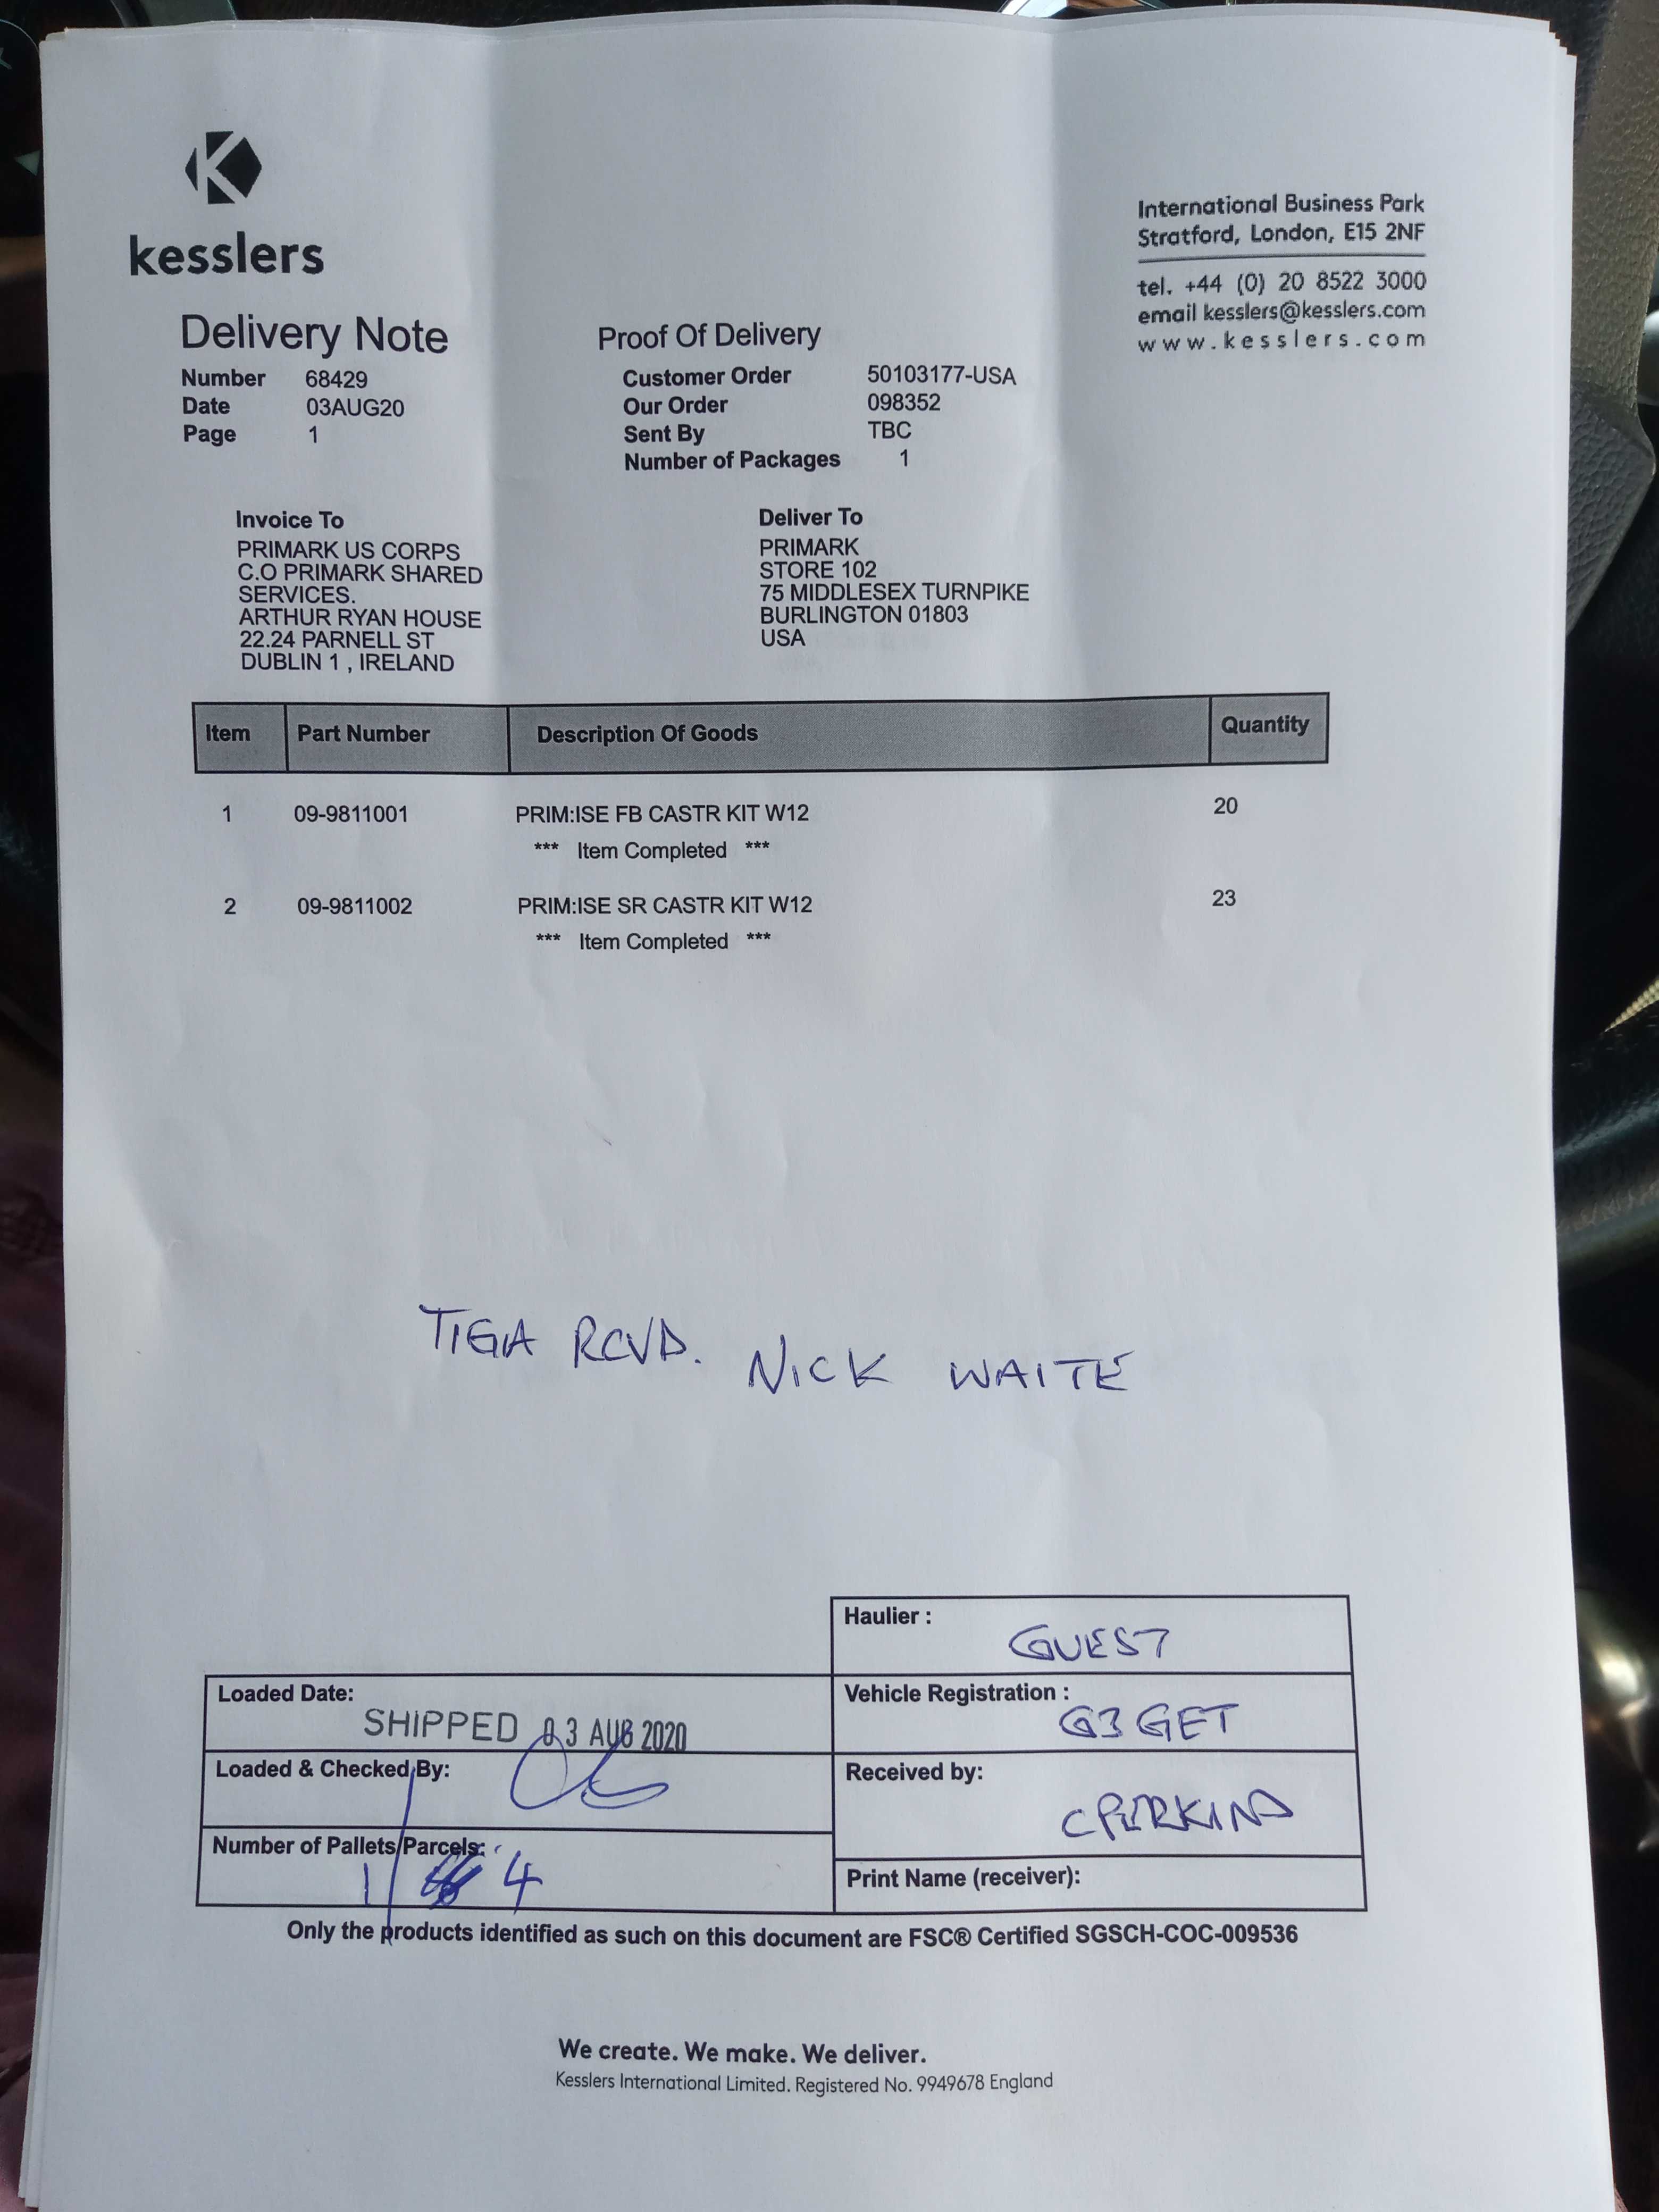 kesslers
International Business Park
Stratford, London, E15 2NF
tel. +44 (0) 20 8522 3000
email kesslers@kesslers.com
www.kesslers.com
Delivery Note
Number 68429
Date 03AUG20
Page 1
Proof Of Delivery
Customer Order 50103177-USA
Our Order 098352
Sent By TBC
Number of Packages 1
Invoice To
PRIMARK US CORPS
C.O PRIMARK SHARED
SERVICES.
ARTHUR RYAN HOUSE
22.24 PARNELL ST
DUBLIN 1 , IRELAND
Deliver To
PRIMARK
STORE 102
75 MIDDLESEX TURNPIKE
BURLINGTON 01803
USA
Item Part Number Description Of Goods Quantity
1 09-9811001 PRIM:ISE FB CASTR KIT W12 20
*** Item Completed ***
2 09-9811002 PRIM:ISE SR CASTR KIT W12 23
*** Item Completed ***
TIGA RCVD. NICK WAITE
Haulier :
GUEST
Loaded Date:
SHIPPED 03 AUG 2020
Vehicle Registration :
G3 GET
Loaded & Checked By:
Received by:
Number of Pallets/Parcels:
1 / 4
Print Name (receiver):
Only the products identified as such on this document are FSC® Certified SGSCH-COC-009536
We create. We make. We deliver.
Kesslers International Limited. Registered No. 9949678 England